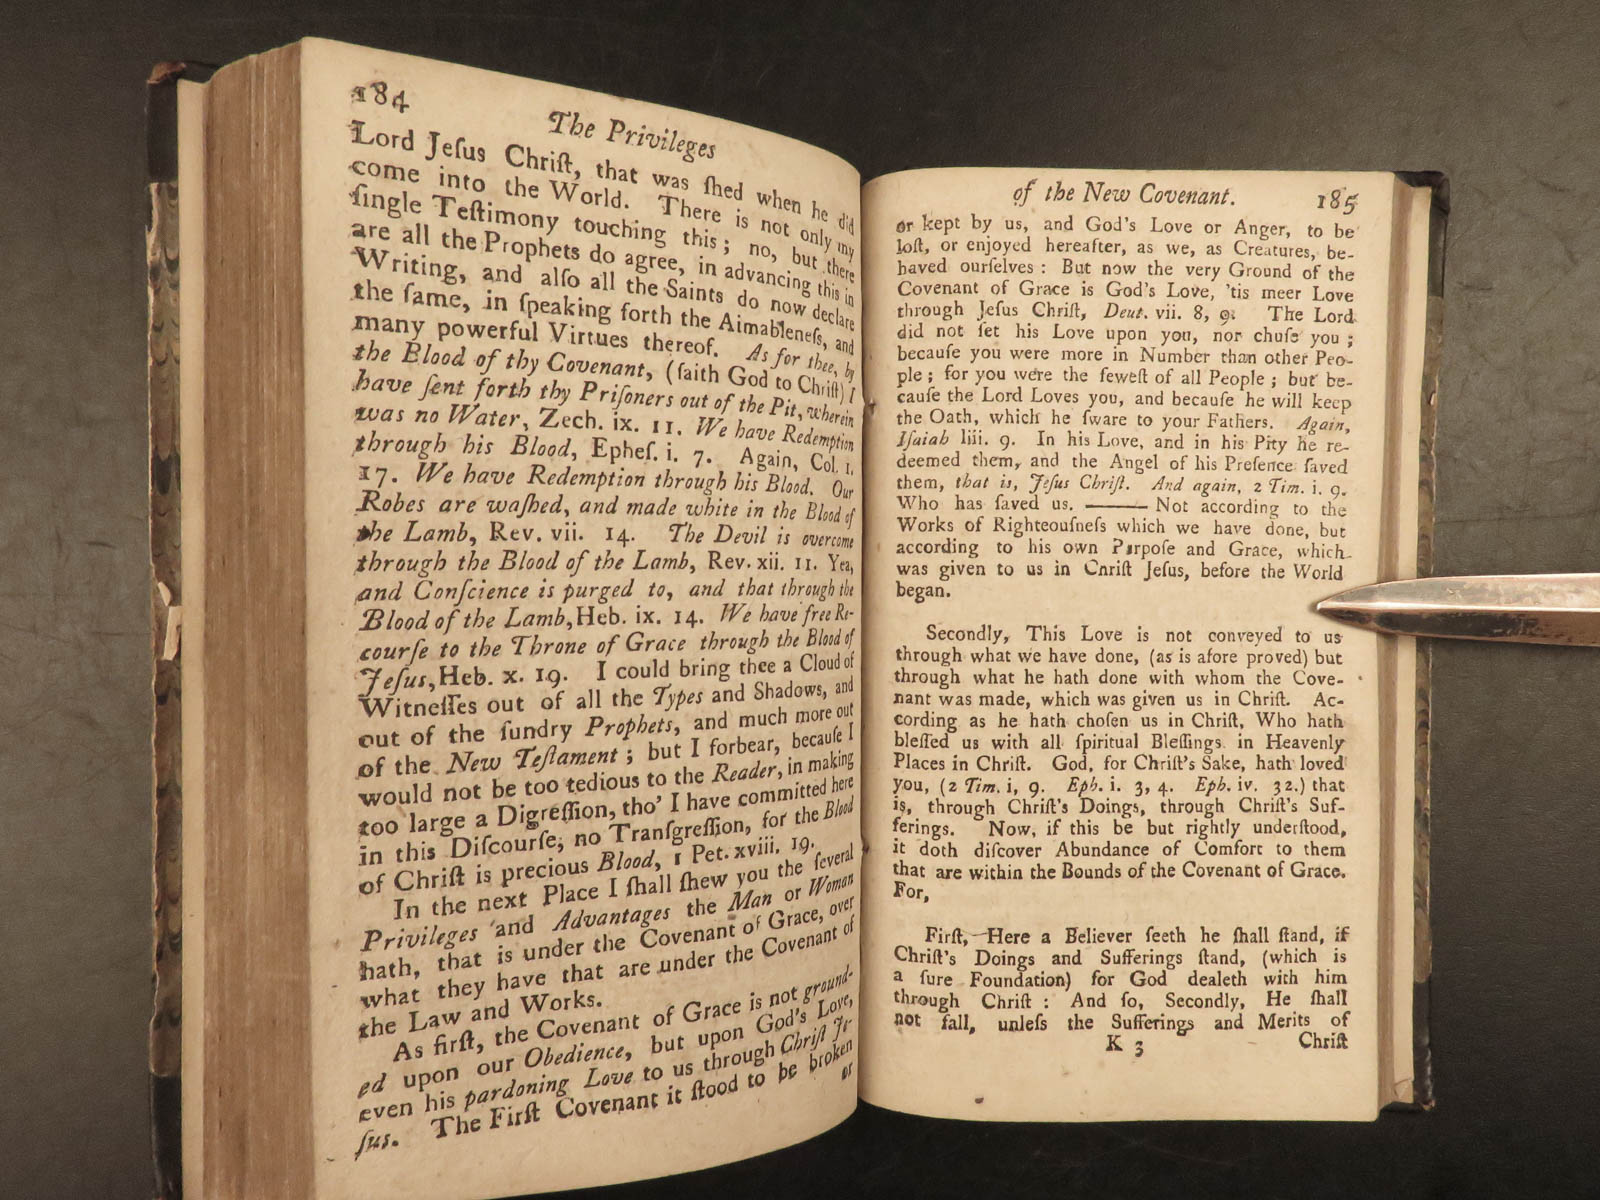 184
The Privileges
Lord Jeſus Chriſt, that was ſhed when he did
come into the World. There is not only my
ſingle Teſtimony touching this; no, but there
are all the Prophets do agree, in advancing this in
Writing, and alſo all the Saints do now declare
the ſame, in ſpeaking forth the Aimableneſs, and
many powerful Virtues thereof. As for thee, by
the Blood of thy Covenant, (ſaith God to Chriſt) I
have ſent forth thy Priſoners out of the Pit, wherein
was no Water, Zech. ix. 11. We have Redemption
through his Blood, Epheſ. i. 7. Again, Col. 1.
17. We have Redemption through his Blood. Our
Robes are waſhed, and made white in the Blood of
the Lamb, Rev. vii. 14. The Devil is overcome
through the Blood of the Lamb, Rev. xii. 11. Yea,
and Conſcience is purged to, and that through the
Blood of the Lamb, Heb. ix. 14. We have free Re-
courſe to the Throne of Grace through the Blood of
Jeſus, Heb. x. 19. I could bring thee a Cloud of
Witneſſes out of all the Types and Shadows, and
out of the ſundry Prophets, and much more out
of the New Teſtament; but I forbear, becauſe I
would not be too tedious to the Reader, in making
too large a Digreſſion, tho' I have committed here
in this Diſcourſe, no Tranſgreſſion, for the Blood
of Chriſt is precious Blood, 1 Pet. xviii. 19.
In the next Place I ſhall ſhew you the ſeveral
Privileges and Advantages the Man or Woman
hath, that is under the Covenant of Grace, over
what they have that are under the Covenant of
the Law and Works.
As firſt, the Covenant of Grace is not ground-
ed upon our Obedience, but upon God's Love,
even his pardoning Love to us through Chriſt Je-
ſus. The Firſt Covenant it ſtood to be broken
or
of the New Covenant. 185
or kept by us, and God's Love or Anger, to be
loſt, or enjoyed hereafter, as we, as Creatures, be-
haved ourſelves: But now the very Ground of the
Covenant of Grace is God's Love, 'tis meer Love
through Jeſus Chriſt, Deut. vii. 8, 9. The Lord
did not ſet his Love upon you, nor chuſe you;
becauſe you were more in Number than other Peo-
ple; for you were the feweſt of all People; but be-
cauſe the Lord Loves you, and becauſe he will keep
the Oath, which he ſware to your Fathers. Again,
Iſaiah liii. 9. In his Love, and in his Pity he re-
deemed them, and the Angel of his Preſence ſaved
them, that is, Jeſus Chriſt. And again, 2 Tim. i. 9.
Who has ſaved us. —— Not according to the
Works of Righteouſneſs which we have done, but
according to his own Purpoſe and Grace, which
was given to us in Chriſt Jeſus, before the World
began.
Secondly, This Love is not conveyed to us
through what we have done, (as is afore proved) but
through what he hath done with whom the Cove-
nant was made, which was given us in Chriſt. Ac-
cording as he hath choſen us in Chriſt, Who hath
bleſſed us with all ſpiritual Bleſſings in Heavenly
Places in Chriſt. God, for Chriſt's Sake, hath loved
you, (2 Tim. i, 9. Eph. i. 3, 4. Eph. iv. 32.) that
is, through Chriſt's Doings, through Chriſt's Suf-
ferings. Now, if this be but rightly underſtood,
it doth diſcover Abundance of Comfort to them
that are within the Bounds of the Covenant of Grace.
For,
Firſt, Here a Believer ſeeth he ſhall ſtand, if
Chriſt's Doings and Sufferings ſtand, (which is
a ſure Foundation) for God dealeth with him
through Chriſt: And ſo, Secondly, He ſhall
not fall, unleſs the Sufferings and Merits of
K 3 Chriſt